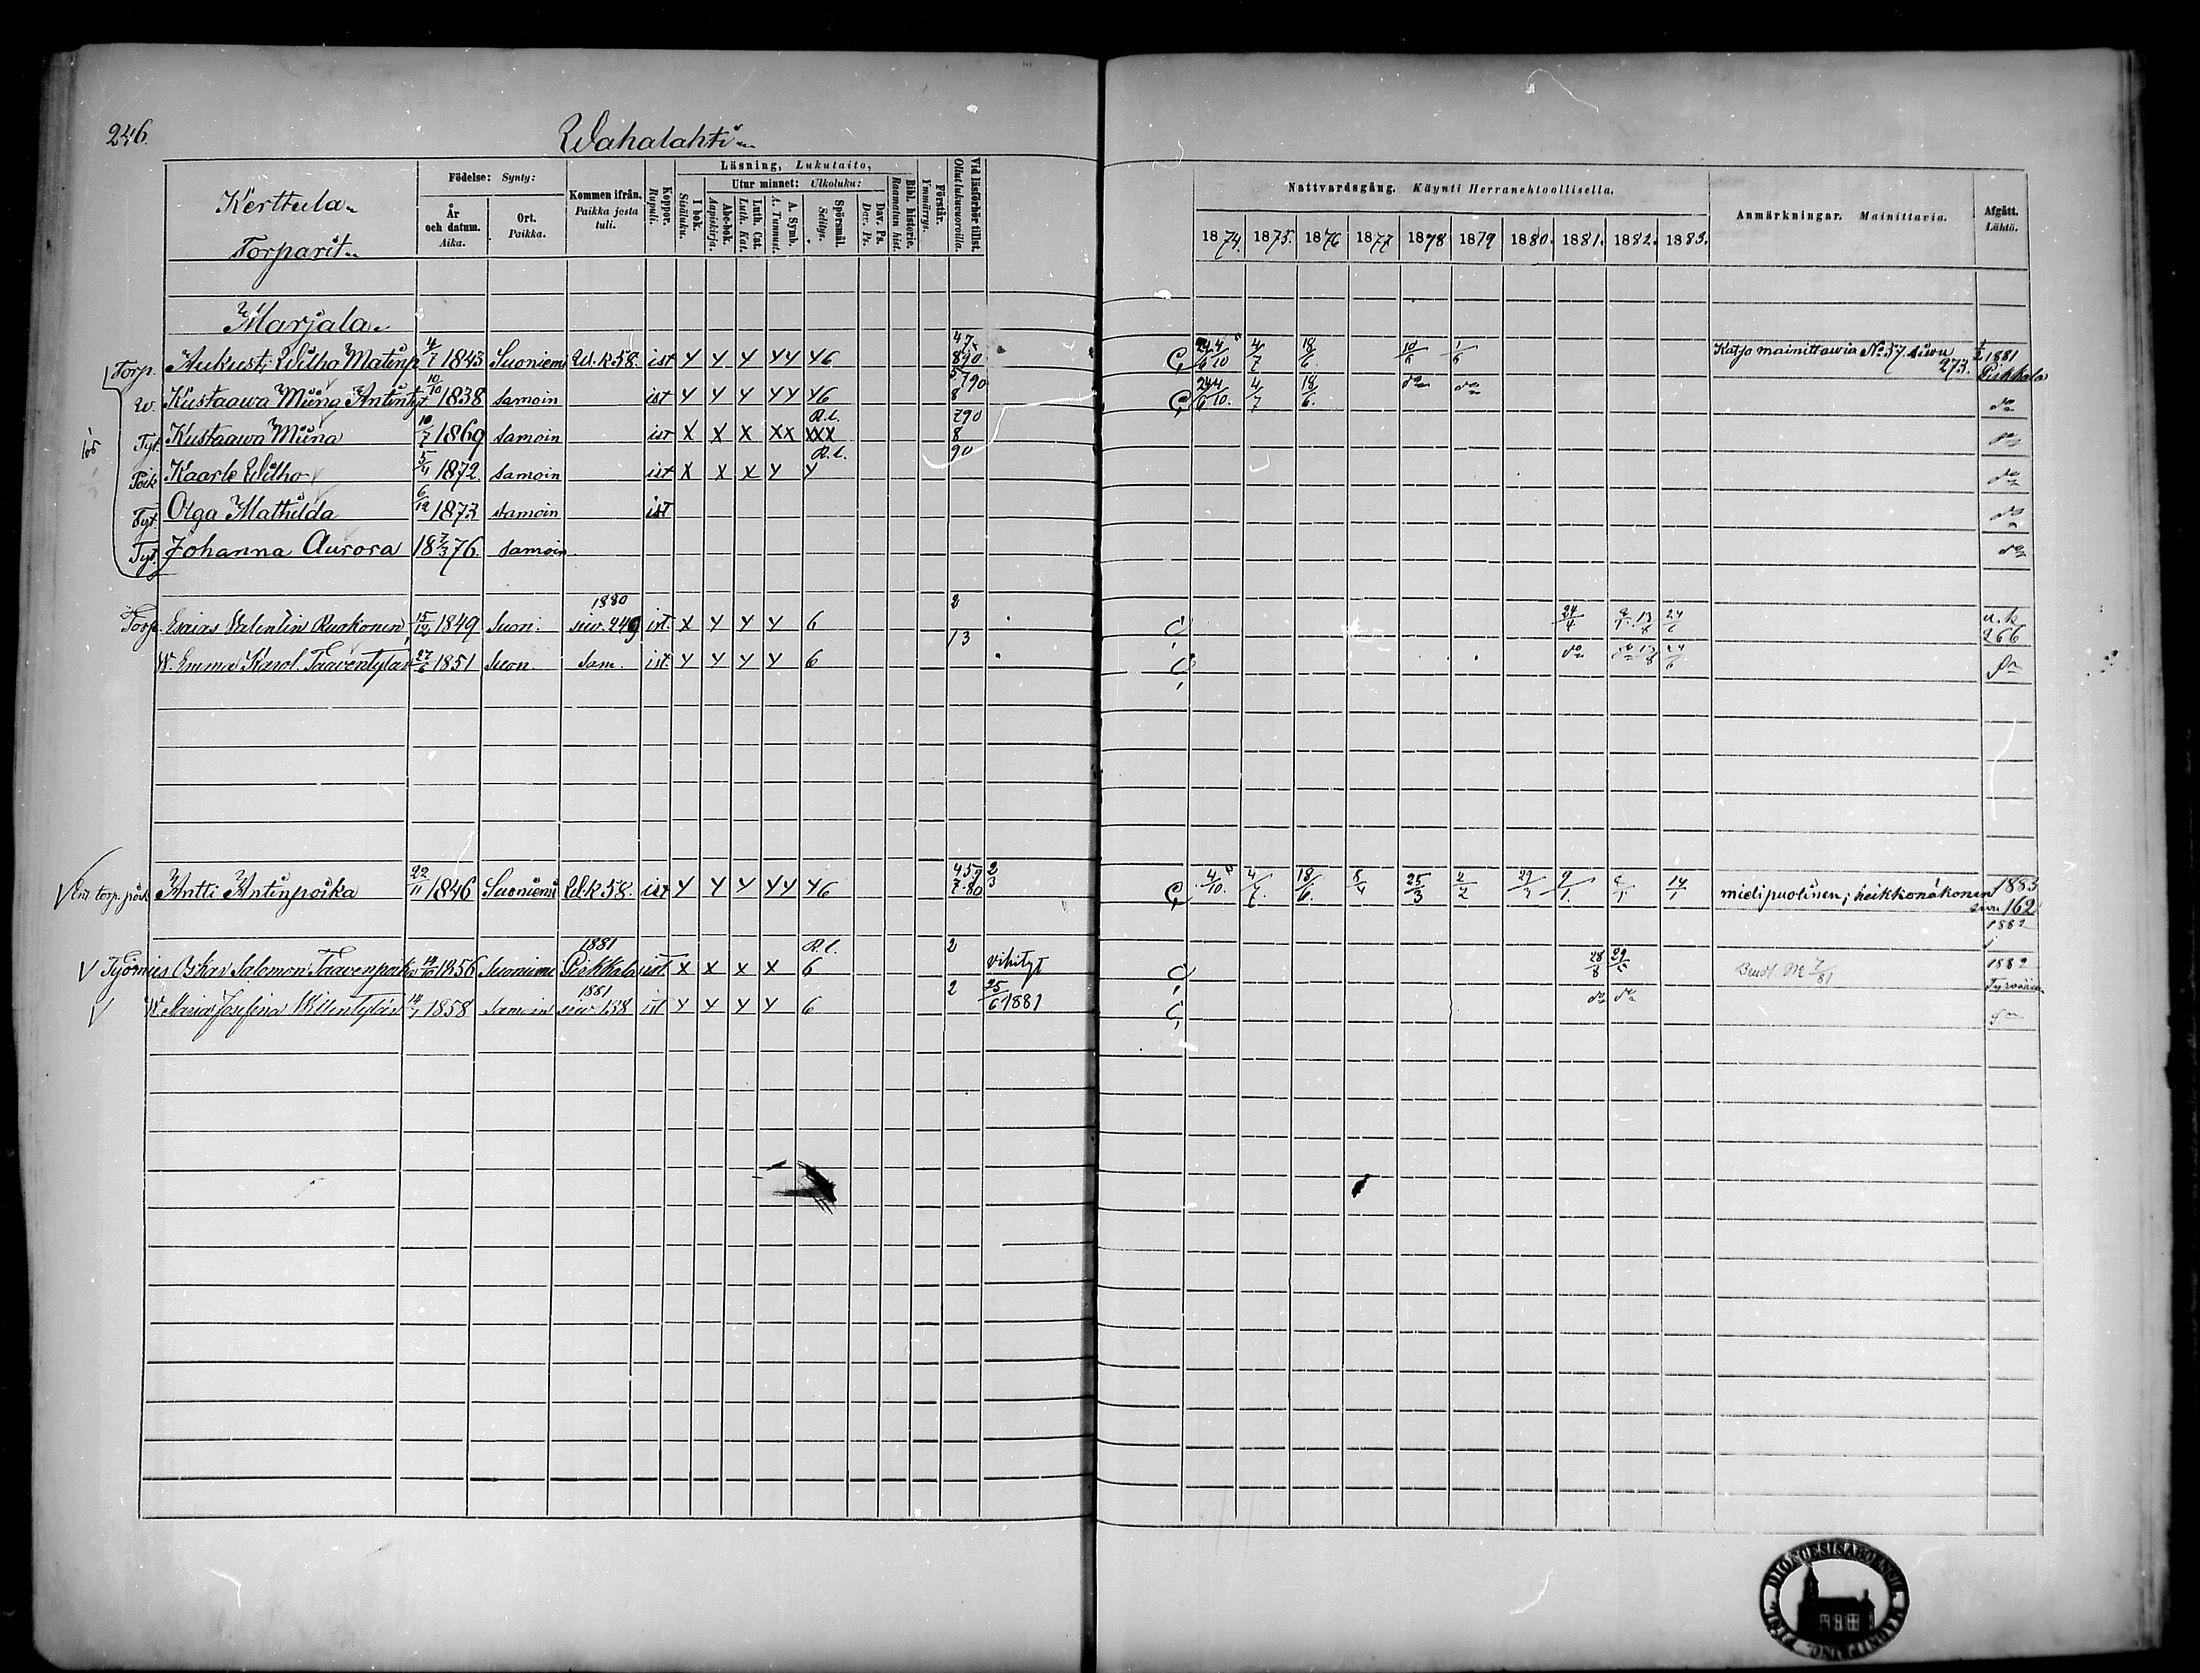 246.
Wahalahti
Kerttula
Torparit
Födelse: Synty:
År och datum. Aika.
Ort. Paikka.
Kommen ifrån. Paikka josta tuli.
Koppor. Rupuli.
Läsning, Lukutaito,
I bok. Sisäluku.
Utur minnet: Ulkoluku:
Abc-bok. Aapiskirja.
Luth. Cat. Luth. Kat.
A. Symb. A. Tunnust.
Spörsmål. Selitys.
Dav. Ps. Dav. Ps.
Bibl. historie. Raamatun hist.
Förstår. Ymmärrys.
Vid läsförhör tillst. Ollut lukuvuoroilla.
Nattvardsgång. Käynti Herranehtoollisella.
1874. 1875. 1876 1877 1878 1879 1880. 1881. 1882. 1883.
Anmärkningar. Mainittavia.
Afgått. Lähtö.
Marjala
Torp. Aukusti Wilho Matinp 4/7 1843 Suoniemi W.k. 58. ist Y Y Y YY Y6 4/7 18/6 10/6 1/6 Katso mainittawia No 37 siwu 273. 1881 Pirkkala
W. Kustaawa Miina Antintyt 10/10 1838 samoin ist Y Y Y YY Y6 4/7 18/6 do do do
Tyt. Kustaawa Miina 10/7 1869 samoin ist X X X XX XXX R.l. 790 8 do
Poik Kaarle Wilho 5/4 1872 samoin ist X X X Y Y R.l. 90 do
Tyt. Olga Mathilda 6/12 1873 samoin ist do
Tyt. Johanna Aurora 18 7/3 76. samoin do
Torp. Esaias Valentin Ruokonen 15/12 1849 Suon. 1880 siw. 249 ist X Y Y Y 6 2 24/4 24/6 u.k 266
W. Emma Karol. Taaventytär 27/6 1851 Suon. Sam. ist Y Y Y Y 6 13 do 24/6
Ent torp. poik Antti Antinpoika 22/11 1846 Suoniemi W.k 58. ist Y Y Y YY Y6 4/10. 4/7. 18/6. 8/4 25/3 2/2 mielipuolinen; heikkonäkönen 1883 siwu 162
Työmies Oskar Salomon Taavenpoika 1856 Suoniemi 1881 Pirkkala ist X X X X 6 R.l. 2 vihityt 28/8 1882
W. Maria Josefina Willentytär 1858 samoin 1881 siw. 138 ist Y Y Y Y 6 2 25/6 1881 do do